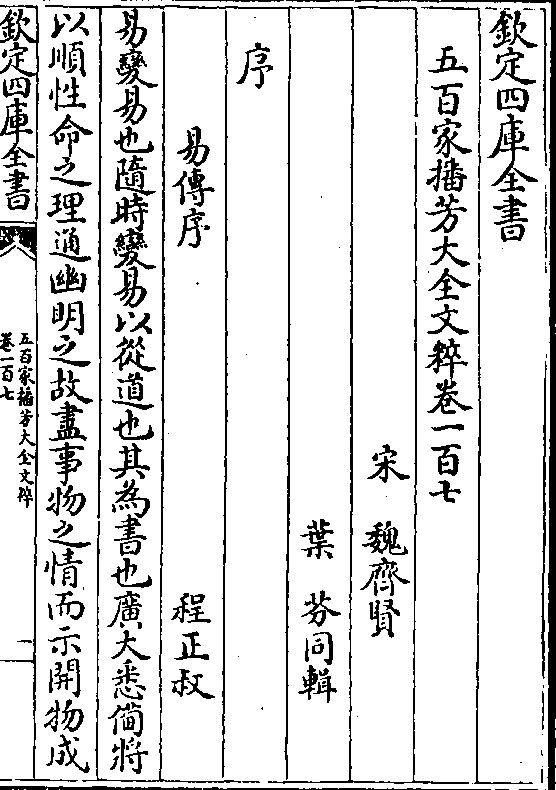 欽定四庫全書
五百家播芳大全文粹卷一百七
宋 魏齊賢
葉 芬同輯
序
易傳序
程正叔
易變易也隨時變易以從道也其為書也廣大悉備將
以順性命之理通幽明之故盡事物之情而示開物成
欽定四庫全書
五百家播芳大全文粹
卷一百七
一